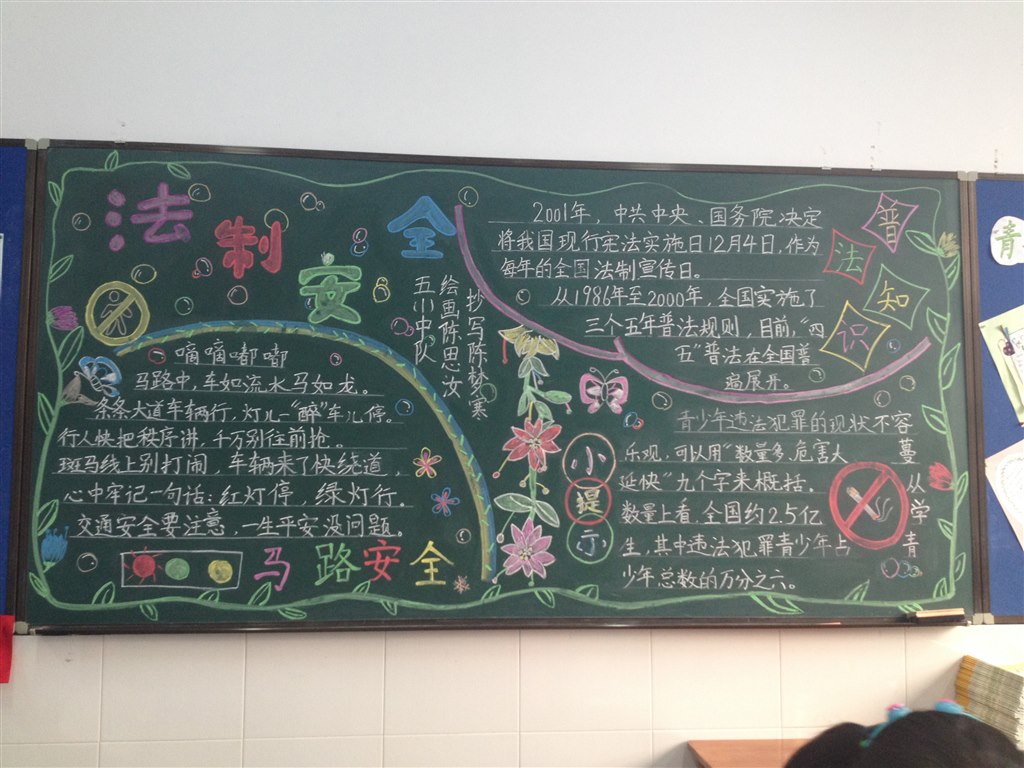 法制安全
嘀嘀嘟嘟
马路中,车如流水马如龙。
条条大道车辆行,灯儿一"醉"车儿停。
行人快把秩序讲,千万别往前抢。
斑马线上别打闹,车辆来了快绕道,
心中牢记一句话:红灯停,绿灯行。
交通安全要注意,一生平安没问题。
马路安全
五小中队
绘画陈思汝
抄写陈梦寒
2001年,中共中央、国务院决定
将我国现行宪法实施日12月4日,作为
每年的全国法制宣传日。
从1986年至2000年,全国实施了
三个五年普法规则,目前,"四
五"普法在全国普
遍展开。
普法知识
小提示
青少年违法犯罪的现状不容
乐观,可以用"数量多,危害大 蔓
延快"九个字来概括。 从
数量上看,全国约2.5亿 学
生,其中违法犯罪青少年占 青
少年总数的万分之六。
青